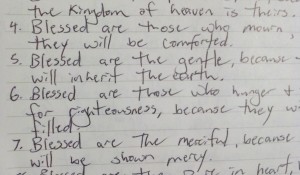 the Kingdom of heaven is theirs.
4. Blessed are those who mourn,
they will be comforted.
5. Blessed are the gentle, because
will inherit the earth.
6. Blessed are those who hunger &
for righteousness, because they w
filled
7. Blessed are The merciful, because
will be shown mercy.
8. Blessed are the in heart,